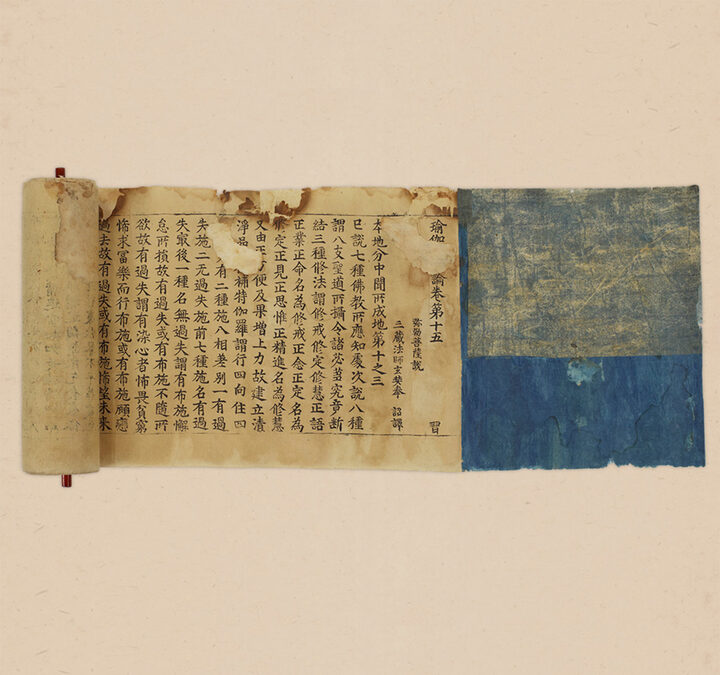 瑜伽論卷第十五 習
弥勒菩薩說
三藏法師玄奘奉 詔譯
本地分中聞所成地第十之三
已說七種佛教所應知處次說八種
謂八支聖道所攝令諸苾芻究竟斷
結三種修法謂修戒修定修慧正語
正業正命名為修戒正念正定名為
修定正見正思惟正精進名為修慧
又由正方便及果增上力故建立清
淨品補特伽羅謂行四向住四
有二種施八相差別一有過
失施二无過失施前七種施名有過
失最後一種名無過失謂有布施懈
怠所損故有過失或有布施不隨所
欲故有過失謂有染心者怖畏貧窮
悕求富樂而行布施或有布施顧戀
過去故有過失或有布施悕望未来